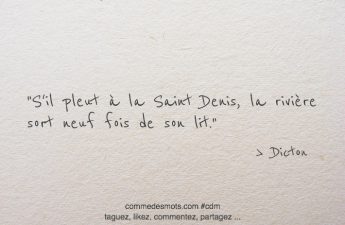 "S'il pleut à la Saint Denis, la rivière
sort neuf fois de son lit."
> Dicton
commedesmots.com #cdm
taguez, likez, commentez, partagez ...